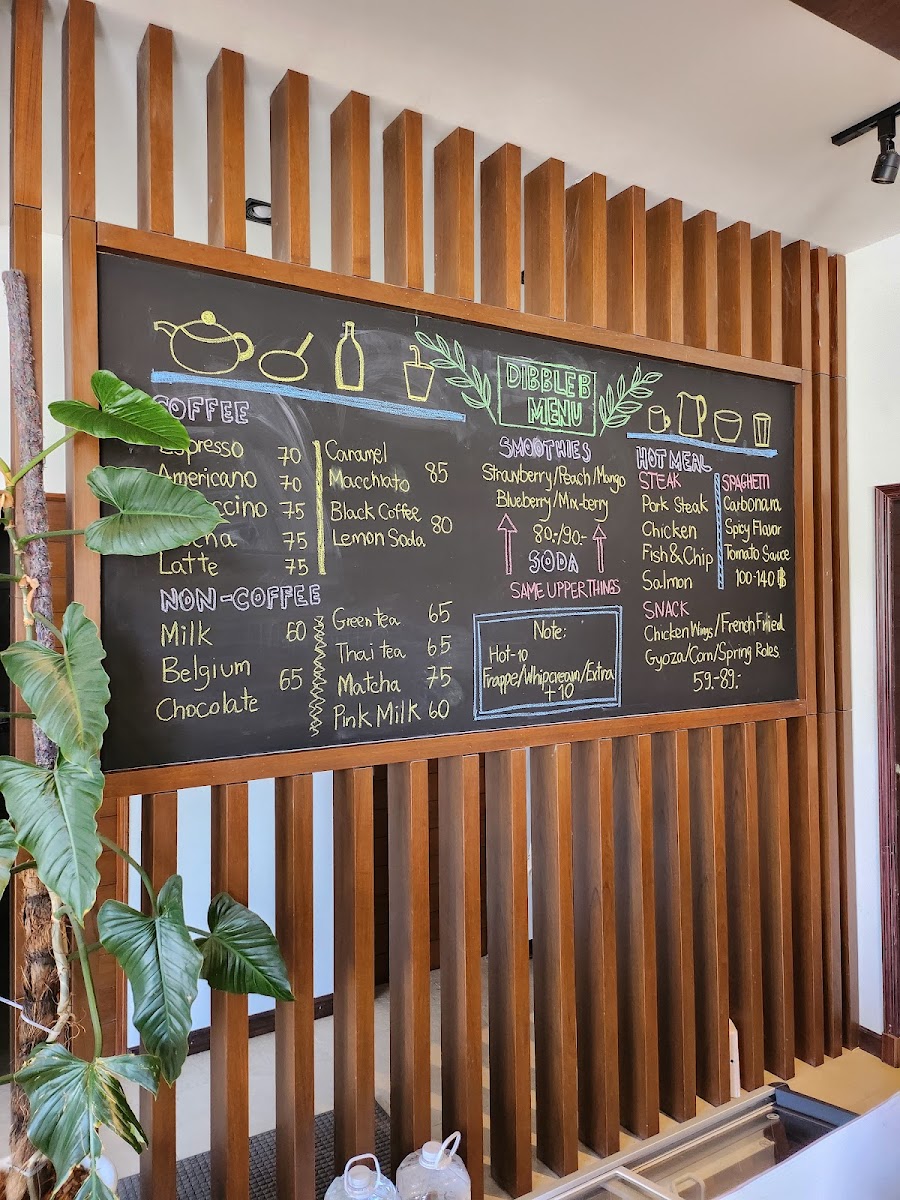 DIBBLE B
MENU
COFFEE
Espresso 70
Americano 70
ccino 75
75
Latte 75
Caramel
Macchiato 85
Black Coffee
Lemon Soda 80
NON-COFFEE
Milk 60
Belgium
Chocolate 65
Green tea 65
Thai tea 65
Matcha 75
Pink Milk 60
SMOOTHIES
Strawberry/Peach/Mango
Blueberry/Mix-berry
80.-/90.-
SODA
SAME UPPER THINGS
Note:
Hot-10
Frappe/Whipcream/Extra
+10
HOT MEAL
STEAK
Pork Steak
Chicken
Fish & Chip
Salmon
SPAGHETTI
Carbonara
Spicy Flavor
Tomato Sauce
100-140 ฿
SNACK
Chicken Wings/French Fried
Gyoza/Corn/Spring Rolls
59.-89.-